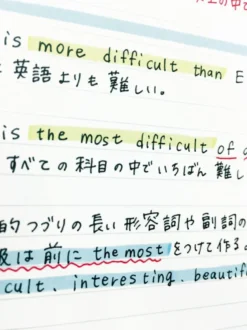 の中で
is more difficult than E
英語よりも難しい。
is the most difficult of a
すべての科目の中でいちばん難し
的つづりの長い形容詞や副詞の
級は前に the most をつけて作る
cult, interesting, beautif